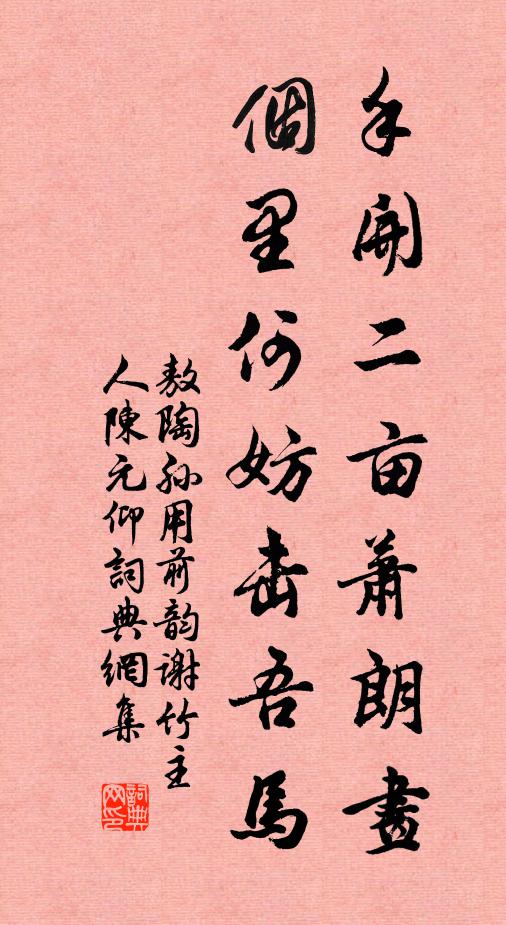 手開二亩蕭朗畫
個里何妨击吾馬
敖陶孙用前韵谢竹主
人陳元仰詞典網集
詞典網印